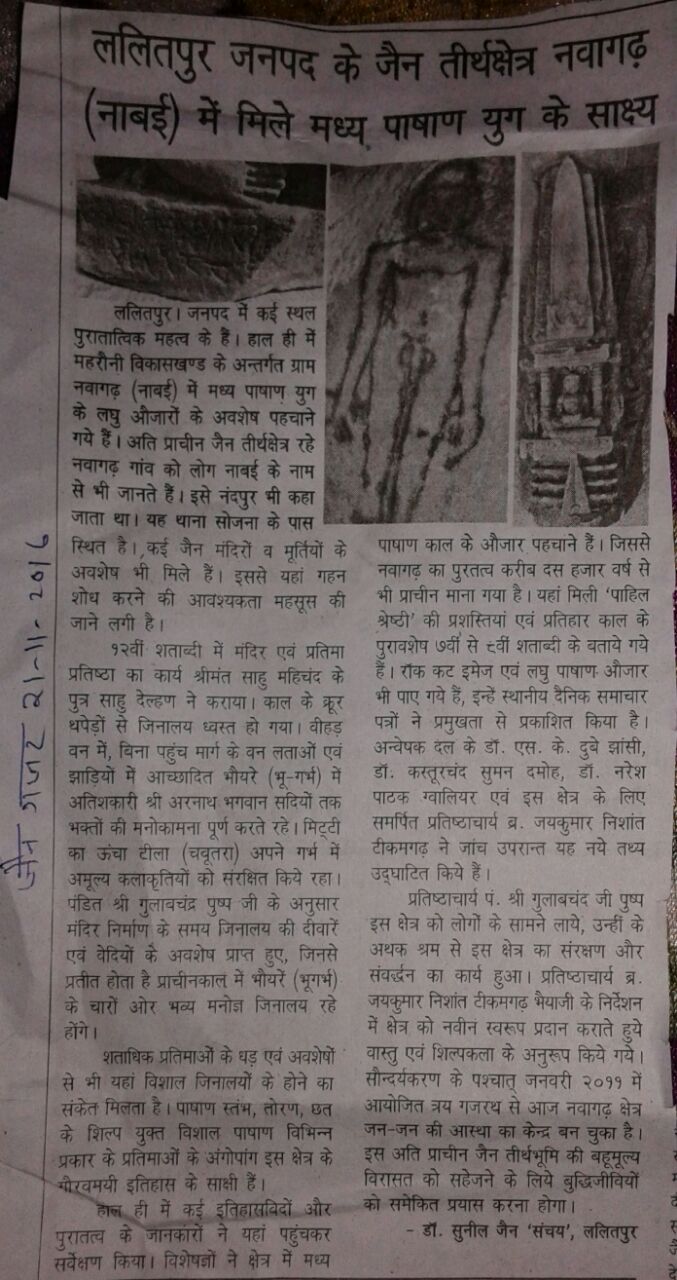 ललितपुर जनपद के जैन तीर्थक्षेत्र नवागढ़
(नाबई) में मिले मध्य पाषाण युग के साक्ष्य
ललितपुर। जनपद में कई स्थल
पुरातात्विक महत्व के हैं। हाल ही में
महरौनी विकासखण्ड के अन्तर्गत ग्राम
नवागढ़ (नाबई) में मध्य पाषाण युग
के लघु औजारों के अवशेष पहचाने
गये हैं। अति प्राचीन जैन तीर्थक्षेत्र रहे
नवागढ़ गांव को लोग नाबई के नाम
से भी जानते हैं। इसे नंदपुर भी कहा
जाता था। यह थाना सोजना के पास
स्थित है। कई जैन मंदिरों व मूर्तियों के
अवशेष भी मिले हैं। इससे यहां गहन
शोध करने की आवश्यकता महसूस की
जाने लगी है।
१२वीं शताब्दी में मंदिर एवं प्रतिमा
प्रतिष्ठा का कार्य श्रीमंत साहु महिचंद के
पुत्र साहु देल्हण ने कराया। काल के क्रूर
थपेड़ों से जिनालय ध्वस्त हो गया। वीहड़
वन में, बिना पहुंच मार्ग के वन लताओं एवं
झाड़ियों में आच्छादित भौयरे (भू-गर्भ) में
अतिशकारी श्री अरनाथ भगवान सदियों तक
भक्तों की मनोकामना पूर्ण करते रहे। मिट्टी
का ऊंचा टीला (चबूतरा) अपने गर्भ में
अमूल्य कलाकृतियों को संरक्षित किये रहा।
पंडित श्री गुलाबचंद्र पुष्प जी के अनुसार
मंदिर निर्माण के समय जिनालय की दीवारें
एवं वेदियों के अवशेष प्राप्त हुए, जिनसे
प्रतीत होता है प्राचीनकाल में भौयरें (भूगर्भ)
के चारों ओर भव्य मनोज्ञ जिनालय रहे
होंगे।
शताधिक प्रतिमाओं के धड़ एवं अवशेषों
से भी यहां विशाल जिनालयों के होने का
संकेत मिलता है। पाषाण स्तंभ, तोरण, छत
के शिल्प युक्त विशाल पाषाण विभिन्न
प्रकार के प्रतिमाओं के अंगोपांग इस क्षेत्र के
गौरवमयी इतिहास के साक्षी हैं।
हाल ही में कई इतिहासविदों और
पुरातत्व के जानकारों ने यहां पहुंचकर
सर्वेक्षण किया। विशेषज्ञों ने क्षेत्र में मध्य
पाषाण काल के औजार पहचाने हैं। जिससे
नवागढ़ का पुरतत्व करीब दस हजार वर्ष से
भी प्राचीन माना गया है। यहां मिली 'पाहिल
श्रेष्ठी' की प्रशस्तियां एवं प्रतिहार काल के
पुरावशेष ७वीं से ८वीं शताब्दी के बताये गये
हैं। रॉक कट इमेज एवं लघु पाषाण औजार
भी पाए गये हैं, इन्हें स्थानीय दैनिक समाचार
पत्रों ने प्रमुखता से प्रकाशित किया है।
अन्वेषक दल के डॉ. एस. के. दुबे झांसी,
डॉ. कस्तूरचंद सुमन दमोह, डॉ. नरेश
पाठक ग्वालियर एवं इस क्षेत्र के लिए
समर्पित प्रतिष्ठाचार्य ब्र. जयकुमार निशांत
टीकमगढ़ ने जांच उपरान्त यह नये तथ्य
उद्घाटित किये हैं।
प्रतिष्ठाचार्य पं. श्री गुलाबचंद जी पुष्प
इस क्षेत्र को लोगों के सामने लाये, उन्हीं के
अथक श्रम से इस क्षेत्र का संरक्षण और
संवर्द्धन का कार्य हुआ। प्रतिष्ठाचार्य ब्र.
जयकुमार निशांत टीकमगढ़ भैयाजी के निर्देशन
में क्षेत्र को नवीन स्वरूप प्रदान कराते हुये
वास्तु एवं शिल्पकला के अनुरूप किये गये।
सौन्दर्यकरण के पश्चात् जनवरी २०११ में
आयोजित त्रय गजरथ से आज नवागढ़ क्षेत्र
जन-जन की आस्था का केन्द्र बन चुका है।
इस अति प्राचीन जैन तीर्थभूमि की बहूमूल्य
विरासत को सहेजने के लिये बुद्धिजीवियों
को समेकित प्रयास करना होगा।
- डॉ. सुनील जैन 'संचय', ललितपुर
जैन गजट 21-11-2016